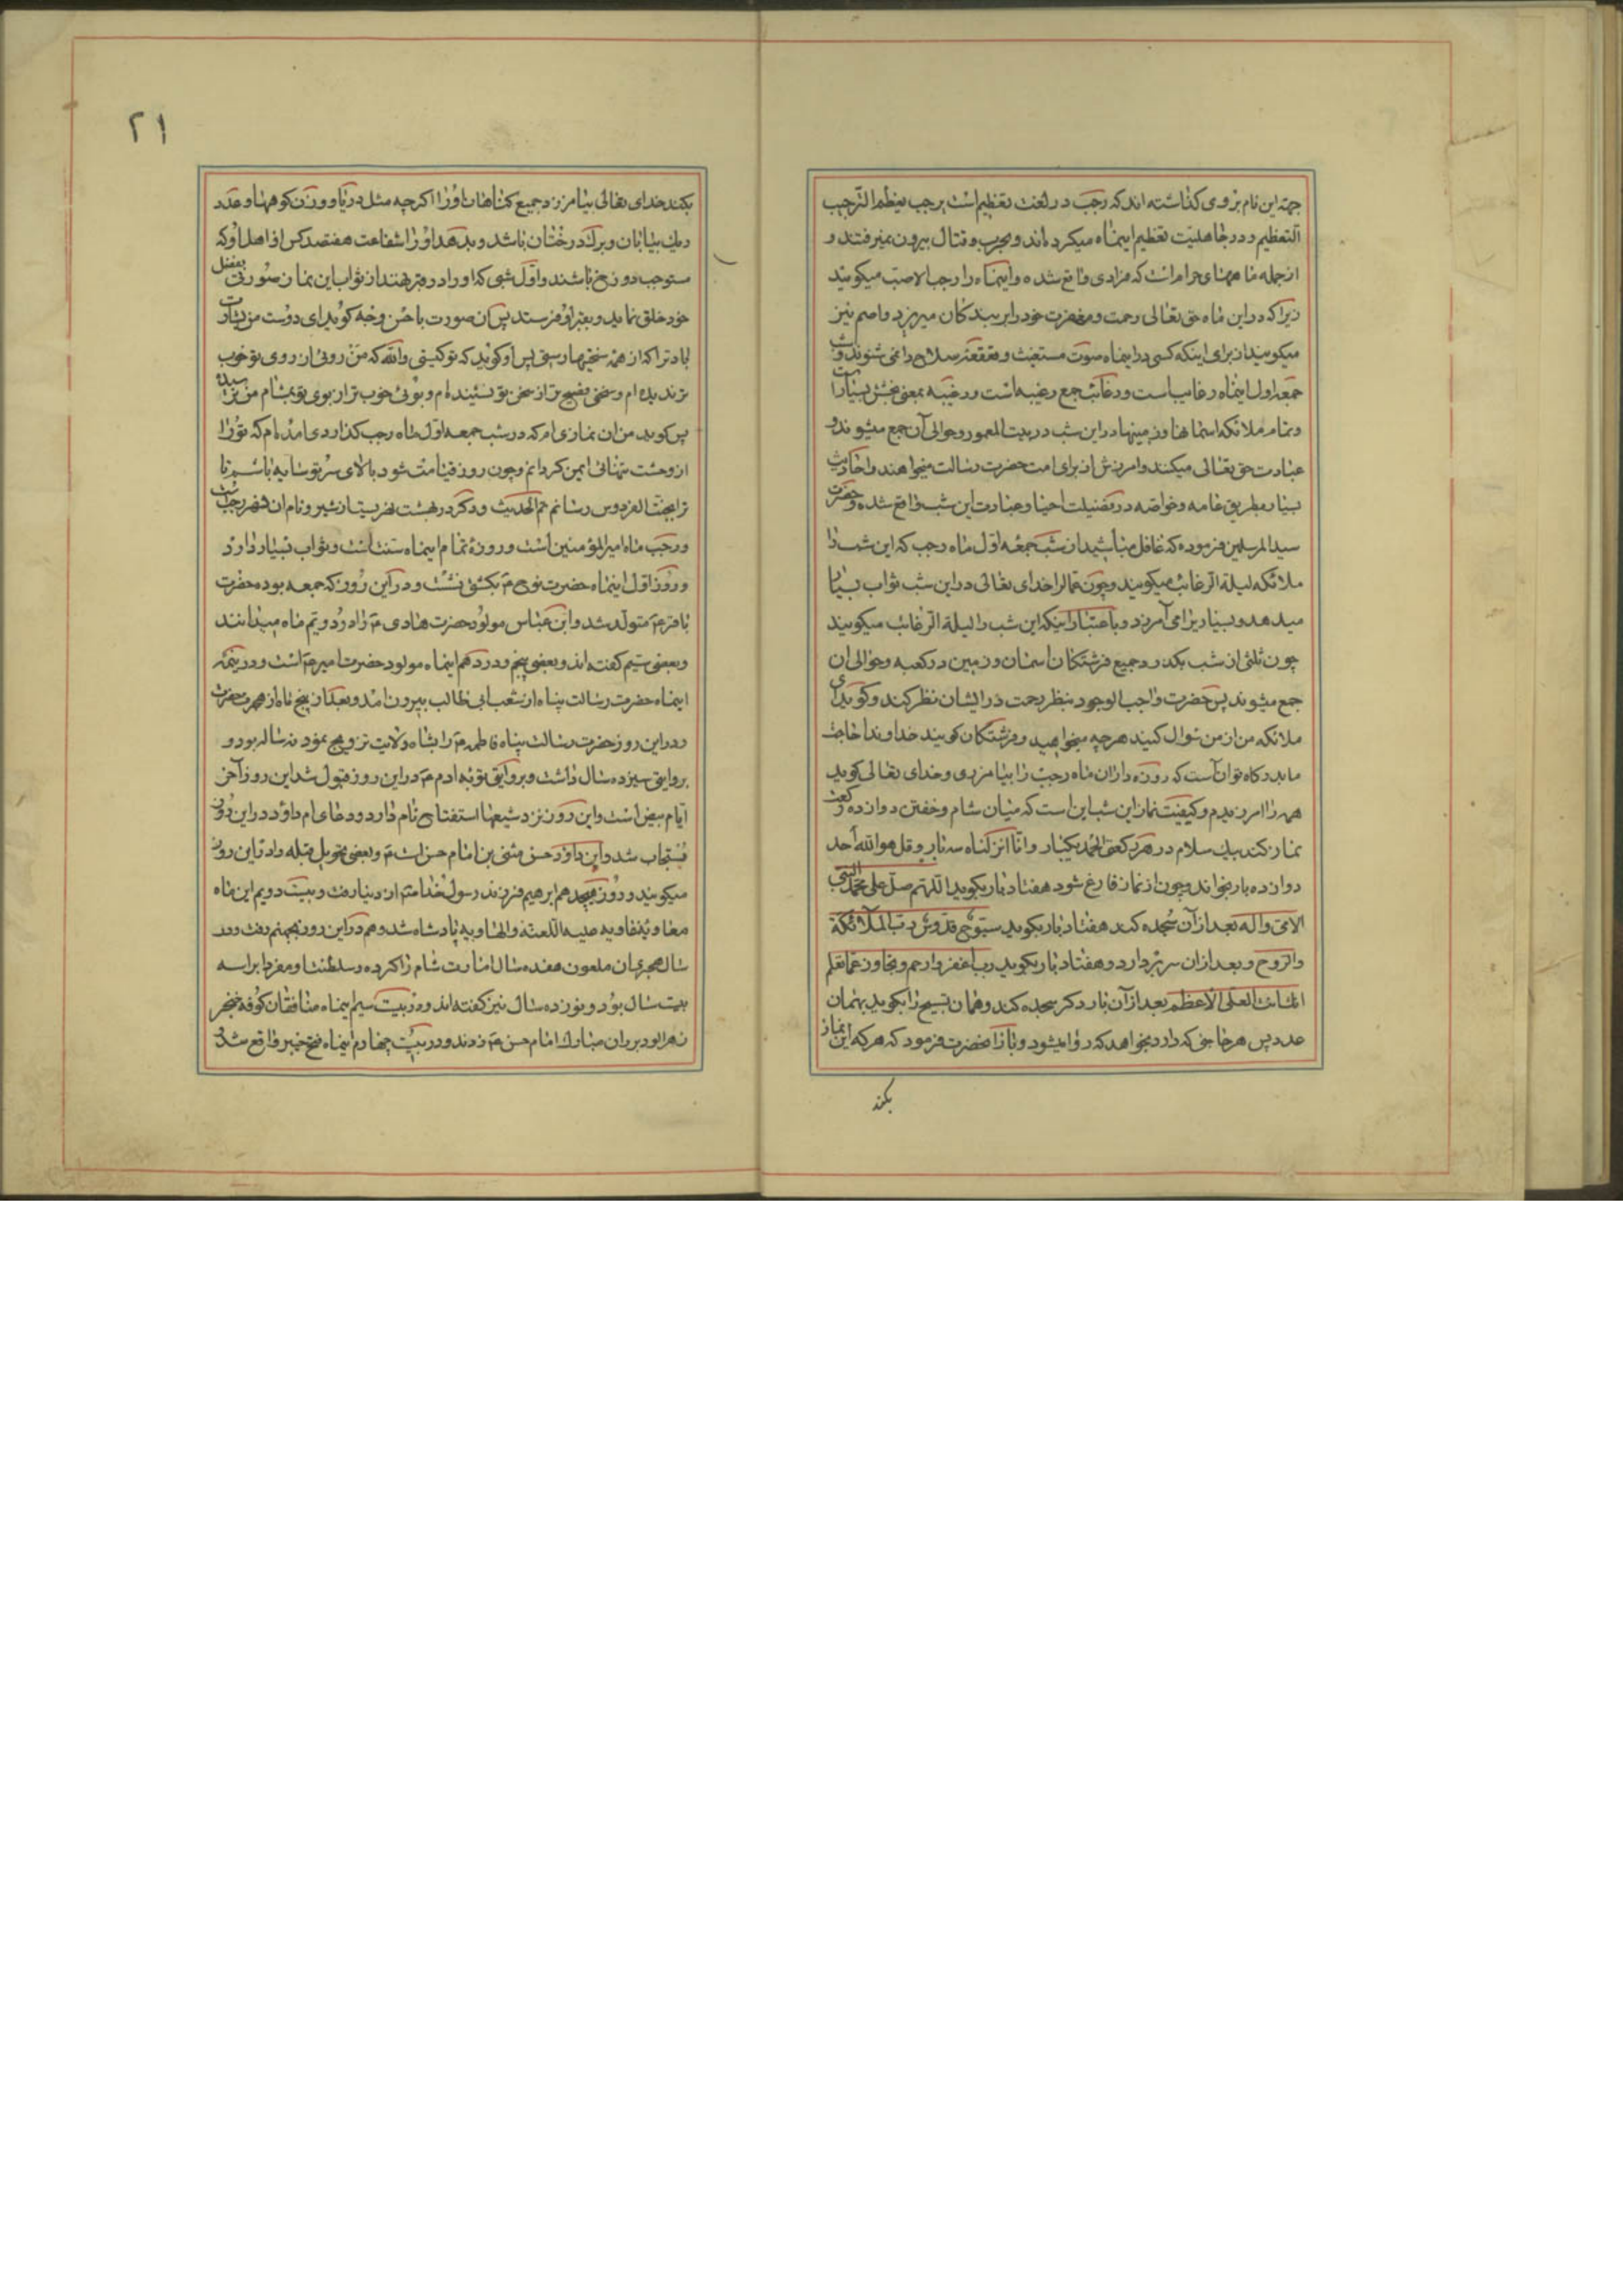 جهة این نام بروی گذاشته اند که رجب در لغت تعظیم است یرجب یعظم الترجیب
التعظیم و در جاهلیت تعظیم اینماه میکرده اند و بحرب و قتال بیرون نمیرفتند و
از جمله ماههای حرام است که فرادی واقع شده و اینماه را رجب الاصب میکویند
زیرا که در این ماه حق تعالی رحمت و مغفرت خود را بر بندکان میریزد و اصم نیز
میکویند از برای اینکه کسی در اینماه صوت مستغیث و قعقعه سلاح را نمی شنوند و شب
جمعه اول اینماه رغایب است و رغائب جمع رغیبه است و رغیبه بمعنی بخشش بسیار است
و تمام ملائکه اسمانها و زمینها در این شب در بیت المعمور و حوالی آن جمع میشوند و
عبادت حق تعالی میکنند و امرزش از برای امت حضرت رسالت میخواهند و احادیث
بسیار بطریق عامه و خواصه در فضیلت احیا و عبادت این شب واقع شده و حضرت
سید المرسلین فرموده که غافل مباشید از شب جمعه اول ماه رجب که این شب را
ملائکه لیلة الرغائب میکویند و چون خدای تعالی در این شب ثواب بسیار
میدهد و بسیار یرا می آمرزد و باعتبار اینکه این شب را لیلة الرغائب میکویند
چون ثلثی از شب بکذرد جمیع فرشتکان اسمان و زمین در کعبه و حوالی ان
جمع میشوند پس حضرت واجب الوجود بنظر رحمت در ایشان نظر کند و کوید ای
ملائکه من از من سوال کنید هرچه میخواهید و فرشتکان کویند خداوندا حاجت
ما بدرکاه تو ان است که روزه داران ماه رجب را بیامرزی و خدای تعالی کوید
همه را امرزیدم و کیفیت نماز این شب این است که میان شام و خفتن دوازده رکعت
نماز کند بیک سلام در هر رکعتی الحمد یکبار و انا انزلناه سه بار و قل هو الله احد
دوازده بار بخواند و چون از نماز فارغ شود هفتاد بار بکوید اللهم صل علی محمد النبی
الامی و اله بعد از آن سجده کند هفتاد بار بکوید سبوح قدوس رب الملائکة
و الروح و بعد از ان سر بردارد و هفتاد بار بکوید رب اغفر و ارحم و تجاوز عما تعلم
انک انت العلی الاعظم بعد از آن بار دکر سجده کند و همان تسبیح را بکوید بهمان
عدد پس هر حاجتی که دارد بخواهد که روا میشود و باز انحضرت فرمود که هرکه این نماز
بکند
۲۱
بکند خدای تعالی بیامرزد جمیع کناهان او را اکر چه مثل دریا و وزن کوهها و عدد
ریک بیابان و برک درختان باشد و بدهد او را شفاعت هفتصد کس از اهل او که
مستوجب دوزخ باشند و اول شبی که او را در قبر نهند از ثواب این نماز صورتی بفضل
خود خلق نماید و بقبر او فرستد پس ان صورت باحسن وجه کوید ای دوست من بشارت
باد ترا که از همه سختیها رستی پس او کوید که تو کیستی والله که من روئی از روی تو خوب
تر ندیده ام و سخنی فصیح تر از سخن تو نشینده ام و بوئی خوب تر از بوی تو بمشام من نرسیده
پس کوید من ان نمازی ام که در شب جمعه اول ماه رجب کذاردی امده ام که تو را
از وحشت تنهائی ایمن کردانم و چون روز قیامت شود بالای سر تو سایه باشم تا
ترا بجنت الفردوس رسانم تم الحدیث و دکر در بهشت نهریست از شیر و نام ان نهر رجب است
و رجب ماه امیر المؤمنین است و روزه تمام اینماه سنت است و ثواب بسیار دارد
و روز اول اینماه حضرت نوح ع بکشتی نشست و در این روز که جمعه بوده حضرت
باقر ع متولد شد و ابن عباس مولود حضرت هادی ع را در دویم ماه میدانند
و بعضی سیم کفته اند و بعضی پنجم و در دهم اینماه مولود حضرت امیر ع است و در نیمه
اینماه حضرت رسالت پناه از شعب ابی طالب بیرون امد و بعد از پنج ماه از هجرت حضرت
در این روز حضرت رسالت پناه فاطمه ع را بشاه ولایت تزویج نمود نه ساله بود و
بروایتی سیزده سال داشت و بروایتی توبه ادم ع در این روز قبول شد این روز آخر
ایام بیض است و این روز نزد شیعها استفتاح نام دارد و دعای ام داؤد در این روز
مستجاب شد و این داؤد حسن مثنی بن امام حسن است ع و بعضی تحویل قبله را در این روز
میکویند و روز هیجدهم ابرهیم فرزند رسول خدا ص از دنیا رفت و بیست دویم این ماه
معاویه علیه اللعنة و الهاویه پادشاه شد و هم در این روز بجهنم رفت و در
سال هجری ان ملعون هفده سال امارت شام را کرده و سلطنت او مفردا براسه
بیست سال بود و نوزده سال نیز کفته اند و روز بیست سیم اینماه منافقان کوفه خنجر
زهرالود بر ران مبارک امام حسن ع زدند و در بیست چهارم اینماه فتح خیبر واقع شد